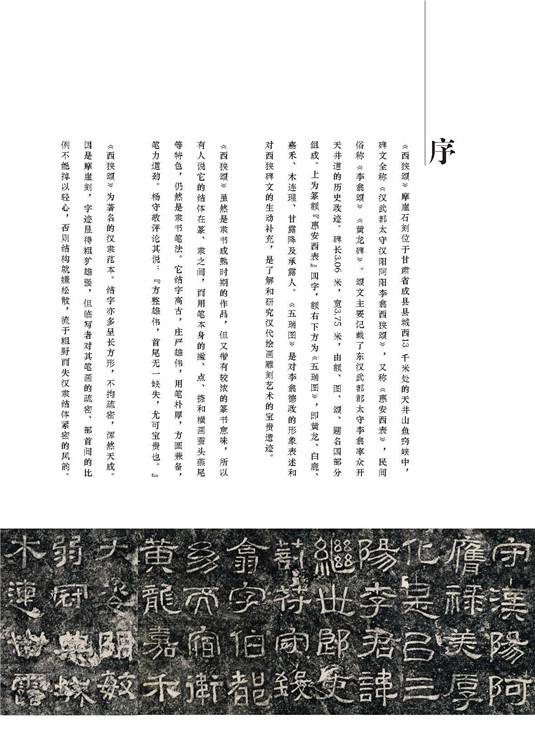 序
《西狭颂》摩崖石刻位于甘肃省成县县城西13千米处的天井山鱼窍峡中，
碑文全称《汉武都太守汉阳阿阳李翕西狭颂》，又称《惠安西表》，民间
俗称《李翕颂》《黄龙碑》。颂文主要记载了东汉武都郡太守李翕率众开
天井道的历史政迹。碑长3.06米，宽3.75米，由额、图、颂、题名四部分
组成。上为篆额『惠安西表』四字，额右下方为《五瑞图》，即黄龙、白鹿、
嘉禾、木连理、甘露降及承露人。《五瑞图》是对李翕德政的形象表述和
对西狭碑文的生动补充，是了解和研究汉代绘画雕刻艺术的宝贵遗迹。
《西狭颂》虽然是隶书成熟时期的作品，但又带有较浓的篆书意味，所以
有人说它的结体在篆、隶之间，而用笔本身的撇、点、捺和横画蚕头燕尾
等特色，仍然是隶书笔法。它结字高古，庄严雄伟，用笔朴厚，方圆兼备，
笔力遒劲。杨守敬评论其说：『方整雄伟，首尾无一缺失，尤可宝贵也。』
《西狭颂》为著名的汉隶范本。结字亦多呈长方形，不拘疏密，浑然天成。
因是摩崖刻，字迹显得粗犷雄强，但临写者对其笔画的疏密、部首间的比
例不能掉以轻心，否则结构就嫌松散，流于粗野而失汉隶结体紧密的风韵。
守漢陽阿
膺祿美厚
化是吕三
陽李君諱
繼世郎吏
莿符守致
翕字伯都
幼而宿衛
黄龍嘉禾
敦
弱冠典
木連